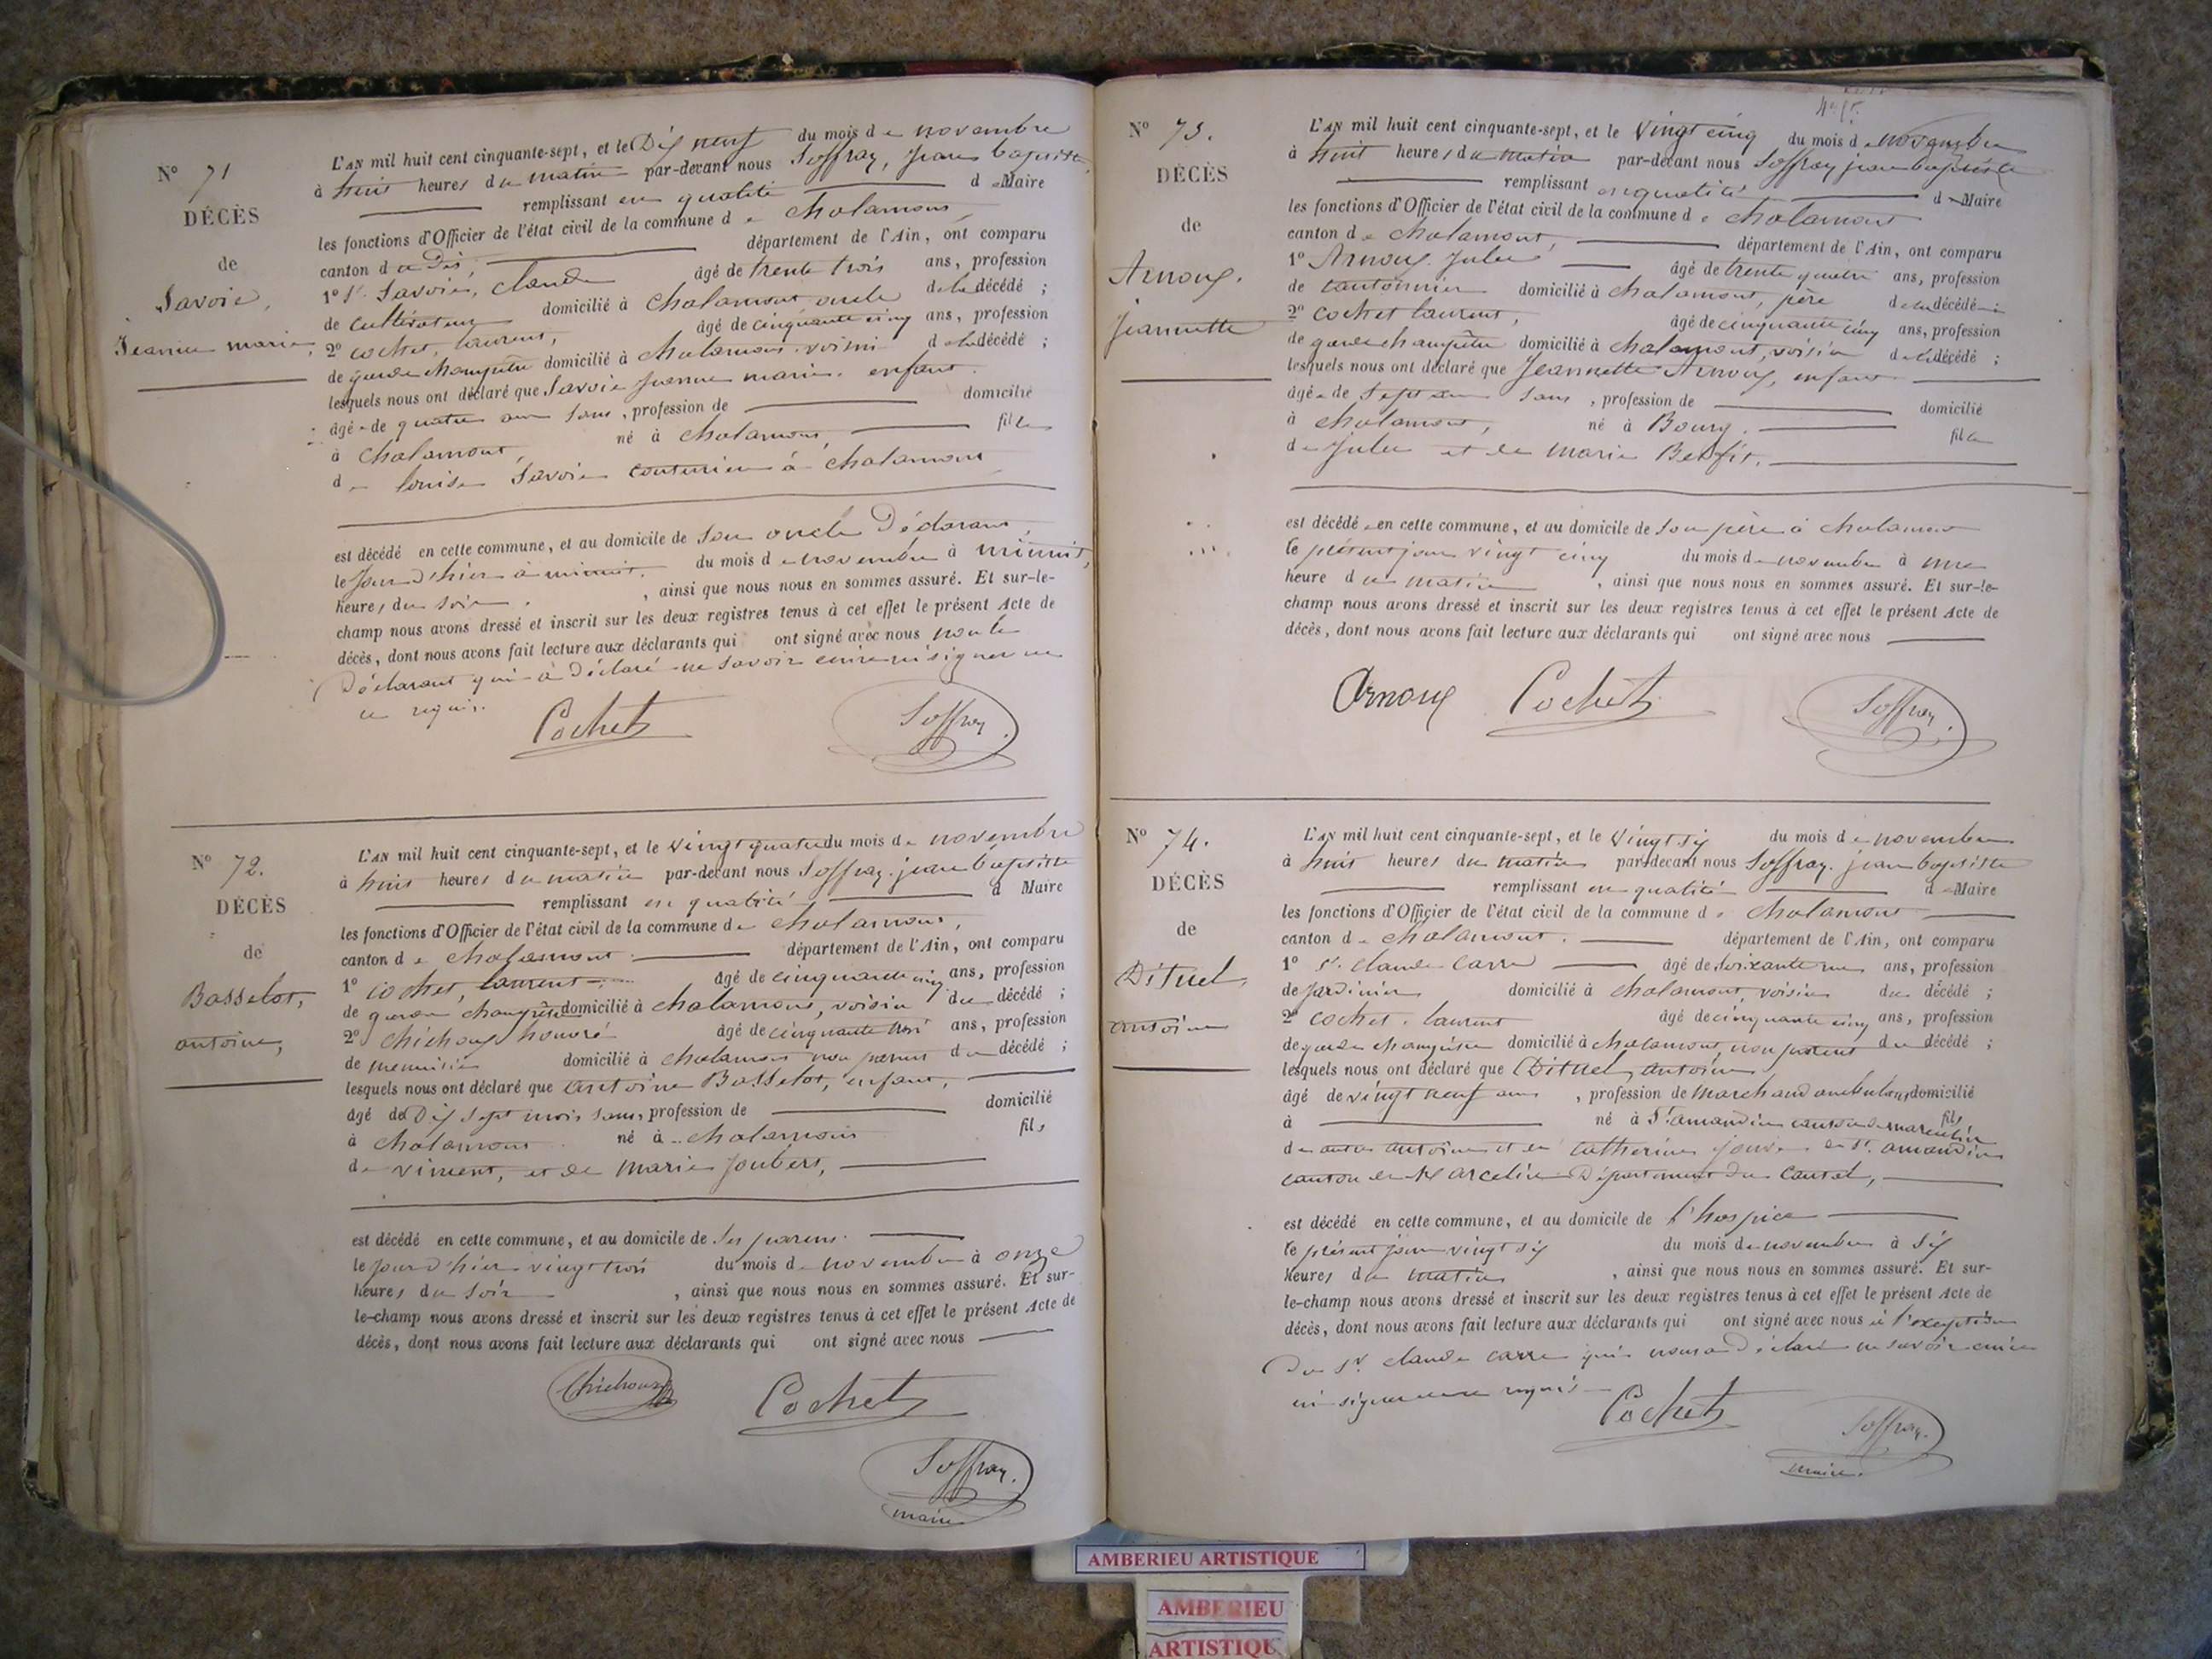 N° 71
DÉCÈS
de
Savoie,
Jeanne marie,
L'AN mil huit cent cinquante-sept, et le Dix neuf du mois de novembre
à huit heures du matin par-devant nous Soffray, jean baptiste
remplissant en qualité de Maire
les fonctions d'Officier de l'état civil de la commune de chalamont,
canton du Dit, département de l'Ain, ont comparu
1° St. Savoie, claude âgé de trente trois ans, profession
de cultivateur domicilié à chalamont oncle de la décédé ;
2° cochet, laurent, âgé de cinquante cinq ans, profession
de garde champêtre domicilié à chalamont voisin de la décédé ;
lesquels nous ont déclaré que Savoie Jeanne marie, enfant.
âgée de quatre ans sans, profession de domicilié
à chalamont, né à chalamont, fille
de louise Savoie couturière à chalamont
est décédé en cette commune, et au domicile de son oncle Déclarant,
le jour d'hier à minuit. du mois de novembre à minuit,
heures du soir, ainsi que nous nous en sommes assuré. Et sur-le-
champ nous avons dressé et inscrit sur les deux registres tenus à cet effet le présent Acte de
décès, dont nous avons fait lecture aux déclarants qui ont signé avec nous non le
Déclarant qui a déclaré ne savoir écrire ni signer en
ce requis.
Cochet Soffray
N° 72.
DÉCÈS
de
Basselot,
antoine,
L'AN mil huit cent cinquante-sept, et le vingt quatre du mois de novembre
à huit heures du matin par-devant nous Soffray. jean baptiste
remplissant en qualité d Maire
les fonctions d'Officier de l'état civil de la commune de chalamont,
canton de chalamont. département de l'Ain, ont comparu
1° cochet, laurent âgé de cinquante cinq ans, profession
de garde champêtre domicilié à chalamont, voisin du décédé ;
2° chichoux honoré âgé de cinquante trois ans, profession
de menuisier domicilié à chalamont non parent du décédé ;
lesquels nous ont déclaré que antoine Basselot, enfant,
âgé de Dix sept mois sans, profession de domicilié
à chalamont né à chalamont fils
de vincent, et de marie joubert,
est décédé en cette commune, et au domicile de ses parens.
le jour d'hier vingt trois du mois de novembre à onze
heures du soir, ainsi que nous nous en sommes assuré. Et sur-
le-champ nous avons dressé et inscrit sur les deux registres tenus à cet effet le présent Acte de
décès, dont nous avons fait lecture aux déclarants qui ont signé avec nous
Chichoux Cochet
Soffray.
maire
N° 73.
DÉCÈS
de
Arnoux.
Jeannette
L'AN mil huit cent cinquante-sept, et le vingt cinq du mois de novembre
à huit heures du matin par-devant nous Soffray jean baptiste
remplissant en qualité de Maire
les fonctions d'Officier de l'état civil de la commune de chalamont
canton de chalamont, département de l'Ain, ont comparu
1° Arnoux Jules âgé de trente quatre ans, profession
de cantonnier domicilié à chalamont, père de la décédé
2° cochet laurent, âgé de cinquante cinq ans, profession
de garde champêtre domicilié à chalamont, voisin de la décédé ;
lesquels nous ont déclaré que Jeannette Arnoux, enfant
âgée de sept ans sans, profession de domicilié
à chalamont, né à Bourg. fille
de Jules et de marie
est décédée en cette commune, et au domicile de son père à chalamont
le présent jour vingt cinq du mois de novembre à une
heure du matin, ainsi que nous nous en sommes assuré. Et sur-le-
champ nous avons dressé et inscrit sur les deux registres tenus à cet effet le présent Acte de
décès, dont nous avons fait lecture aux déclarants qui ont signé avec nous
Arnoux Cochet Soffray
N° 74.
DÉCÈS
de
Dituel,
antoine
L'AN mil huit cent cinquante-sept, et le vingt six du mois de novembre
à huit heures du matin par-devant nous Soffray. jean baptiste
remplissant en qualité de Maire
les fonctions d'Officier de l'état civil de la commune de chalamont
canton de chalamont. département de l'Ain, ont comparu
1° St. claude carre âgé de soixante ans, profession
de jardinier domicilié à chalamont, voisin du décédé ;
2° cochet. laurent âgé de cinquante cinq ans, profession
de garde champêtre domicilié à chalamont, non parent du décédé ;
lesquels nous ont déclaré que Dituel, antoine
âgé de vingt neuf ans, profession de marchand ambulant, domicilié
à né à St. amandin canton de marcelin fils
de antoine et de catherine de St. amandin
canton de Marcelin Département du cantal,
est décédé en cette commune, et au domicile de l'hospice
le présent jour vingt six du mois de novembre à six
heures du matin, ainsi que nous nous en sommes assuré. Et sur-
le-champ nous avons dressé et inscrit sur les deux registres tenus à cet effet le présent Acte de
décès, dont nous avons fait lecture aux déclarants qui ont signé avec nous à l'exception
Du St. claude carre qui nous a Déclaré ne savoir écrire
ni signer en ce requis
Cochet Soffray.
maire.
AMBERIEU ARTISTIQUE
AMBERIEU
ARTISTIQUE